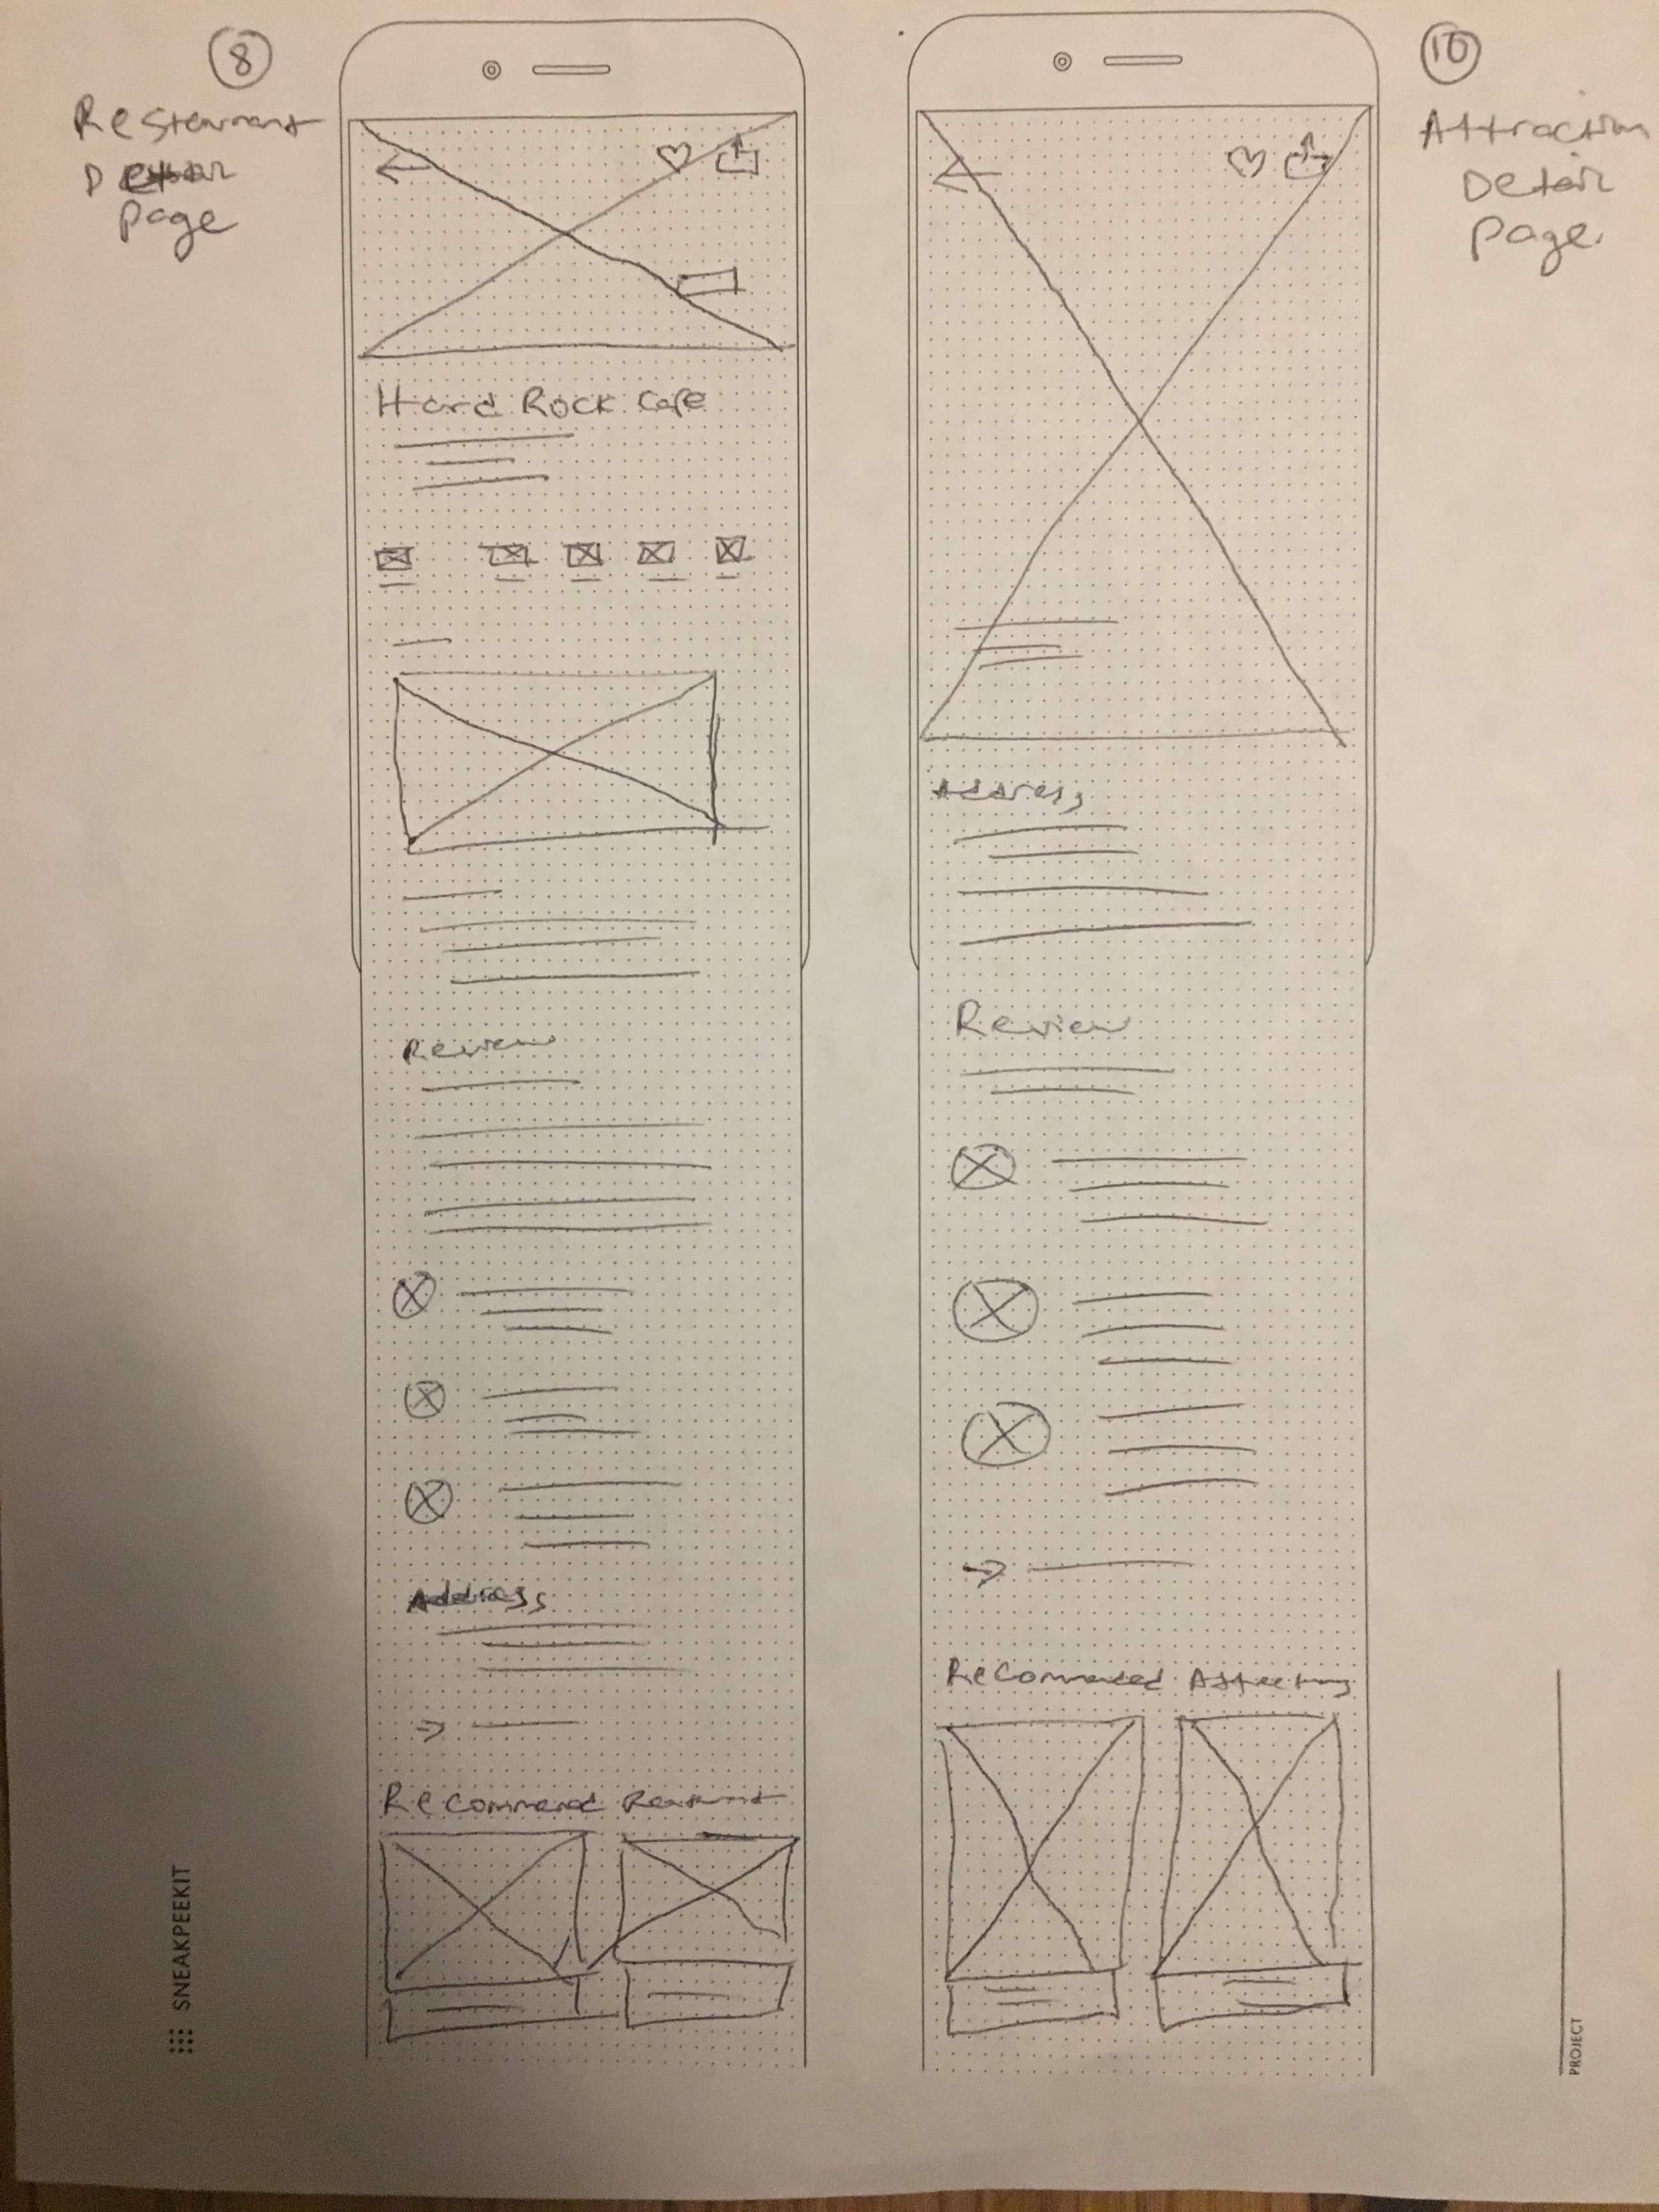 8
Restaurant
Detail
Page
Hard Rock Cafe
Review
Address
Recommend Restaurant
10
Attraction
Detail
Page
Address
Review
Recommended Attractions
SNEAKPEEKIT
PROJECT